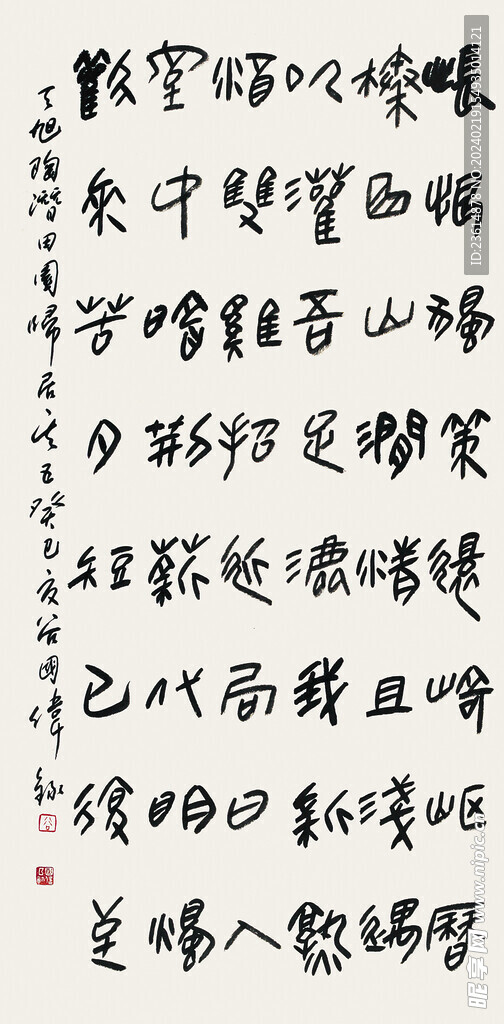 悵恨獨策還崎嶇曆
榛曲山澗清且淺遇
以濯吾足漉我新熟
酒雙雞招近局日入
室中暗荊薪代明燭
歡來苦夕短已復至
天旭陶潛田園歸居其五癸巳夏谷國偉錄
ID:23614878 NO:20240219154935014121
昵享网 www.nipic.cn